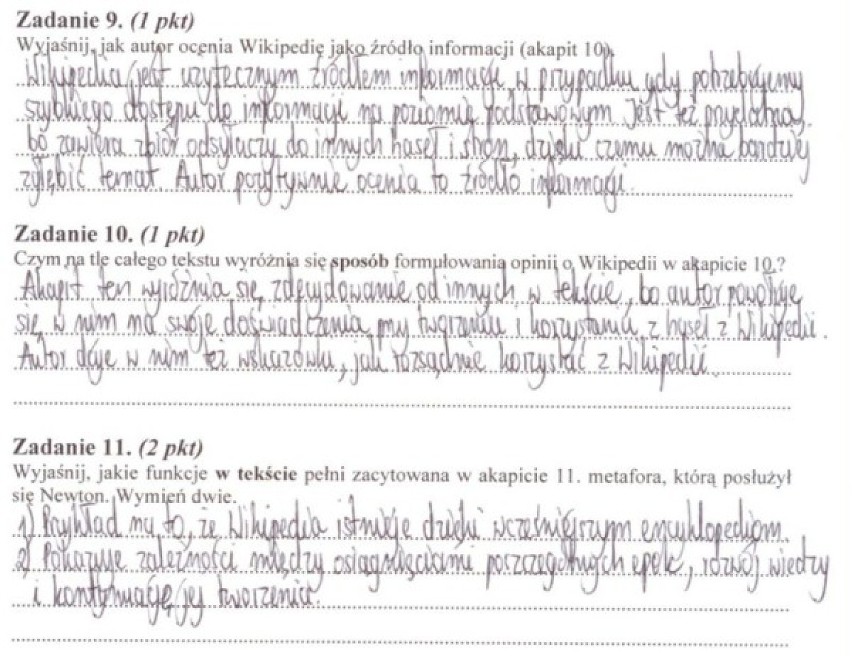 Zadanie 9. (1 pkt)
Wyjaśnij, jak autor ocenia Wikipedię jako źródło informacji (akapit 10).
Wikipedia jest użytecznym źródłem informacji, w przypadku gdy potrzebujemy
szybkiego dostępu do informacji na poziomie podstawowym. Jest też przydatna,
bo zawiera zbiór odsyłaczy do innych haseł i stron, dzięki czemu można bardziej
zgłębić temat. Autor pozytywnie ocenia to źródło informacji.
Zadanie 10. (1 pkt)
Czym na tle całego tekstu wyróżnia się sposób formułowania opinii o Wikipedii w akapicie 10.?
Akapit ten wyróżnia się zdecydowanie od innych w tekście, bo autor powołuje
się w nim na swoje doświadczenia przy tworzeniu i korzystaniu z haseł z Wikipedii.
Autor daje w nim też wskazówki, jak rozsądnie korzystać z Wikipedii.
Zadanie 11. (2 pkt)
Wyjaśnij, jakie funkcje w tekście pełni zacytowana w akapicie 11. metafora, którą posłużył
się Newton. Wymień dwie.
1) Przykład na to, że Wikipedia istnieje dzięki wcześniejszym encyklopediom.
2) Pokazuje zależności między osiągnięciami poszczególnych epok, rozwój wiedzy
i kontynuację jej tworzenia.